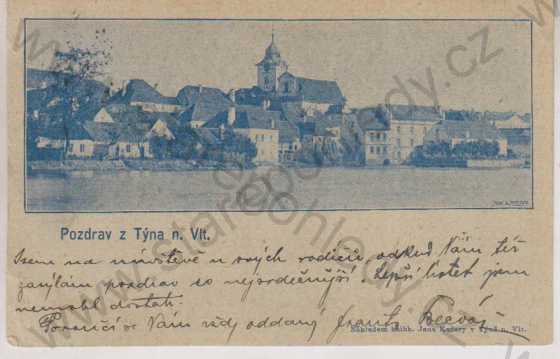 Pozdrav z Týna n. Vlt.
Jsem na návštěvě u svých rodičů odkud Vám též
zasýlám pozdrav co nejsrdečnější. Lepší lístek jsem
nemohl dostati.
Poroučí se Vám vždy oddaný Frant.
Nákladem knihk. Jana Kočery v Týně n. Vlt.
www.staropohlednicky.cz